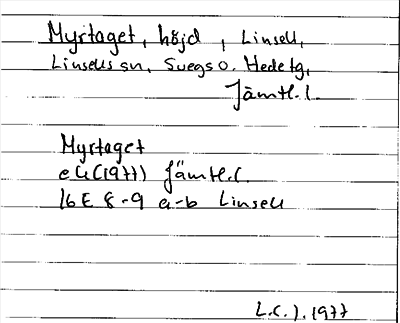 Myrtaget, höjd, Linsell,
Linsells sn, Svegs o. Hede tg,
Jämtl. l.
Myrtaget
ek (1977) Jämtl. l.
16E 8-9 a-b Linsell
L.C.J. 1977